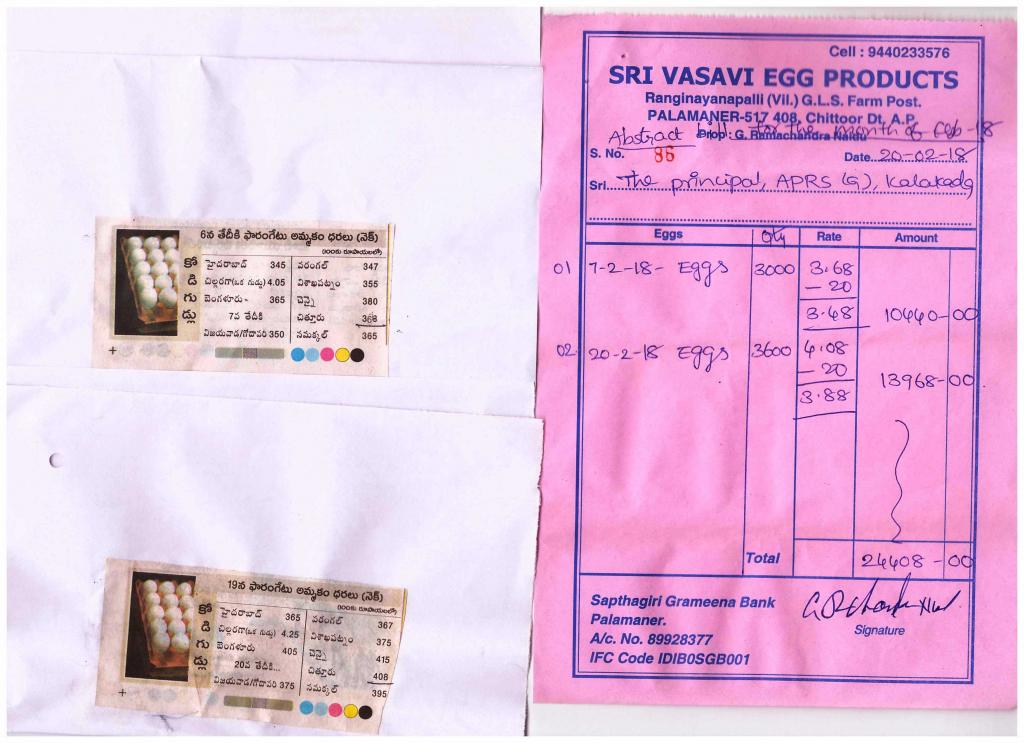 6న తేదీకి ఫారంగేటు అమ్మకం ధరలు (నెక్)
(100కు రూపాయలలో)
కోడి గుడ్లు
హైదరాబాద్ 345 వరంగల్ 347
చిల్లరగా(ఒక గుడ్డు) 4.05 విశాఖపట్నం 355
బెంగళూరు- 365 చెన్నై 380
7వ తేదీకి చిత్తూరు 368
విజయవాడ/గోదావరి 350 నమక్కల్ 365
19న ఫారంగేటు అమ్మకం ధరలు (నెక్)
(100కు రూపాయలలో)
కోడి గుడ్లు
హైదరాబాద్ 365 వరంగల్ 367
చిల్లరగా(ఒక గుడ్డు) 4.25 విశాఖపట్నం 375
బెంగళూరు 405 చెన్నై 415
20వ తేదీకి... చిత్తూరు 408
విజయవాడ/గోదావరి 375 నమక్కల్ 395
Cell : 9440233576
SRI VASAVI EGG PRODUCTS
Ranginayanapalli (Vil.) G.L.S. Farm Post.
PALAMANER-517 408, Chittoor Dt, A.P.
Prop : G. Ramachandra Naidu
Abstract bill for the month of Feb-18
S. No. 86 Date 20-02-18
Sri The principal, APRS (G), Kalakada
Eggs Qty Rate Amount
01 7-2-18- Eggs 3000 3.68
- 20
3.48 10440-00
02 20-2-18 Eggs 3600 4.08
- 20
3.88 13968-00
Total 24408-00
Sapthagiri Grameena Bank
Palamaner.
A/c. No. 89928377
IFC Code IDIB0SGB001
Signature